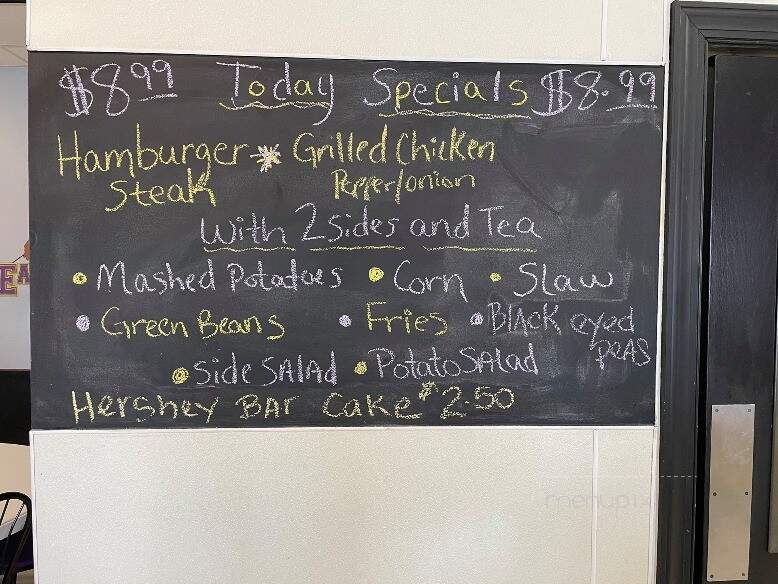 $8.99 Today Specials $8.99
Hamburger * Grilled Chicken
Steak Pepper/onion
With 2 Sides and Tea
• Mashed Potatoes • Corn • Slaw
• Green Beans • Fries • Black eyed
peas
• Side SALAd • Potato SALad
Hershey BAr Cake $2.50
menupix